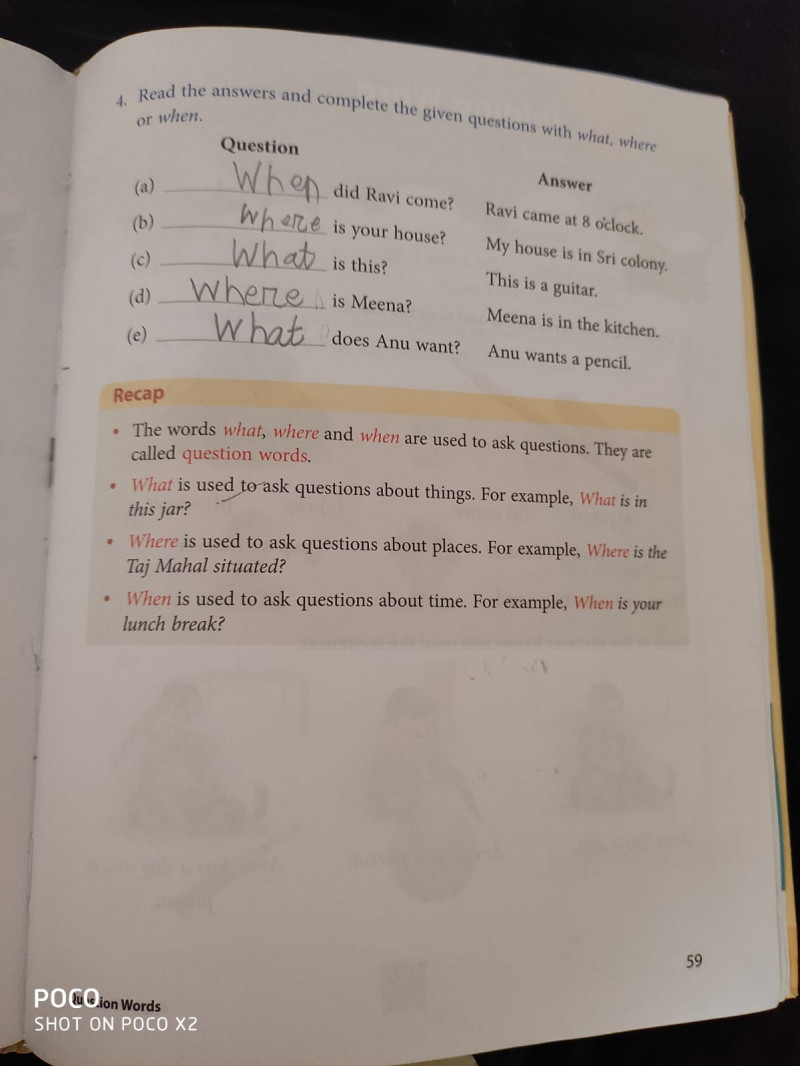 4. Read the answers and complete the given questions with what, where
or when.
Question Answer
(a) When did Ravi come? Ravi came at 8 o'clock.
(b) Where is your house? My house is in Sri colony.
(c) What is this? This is a guitar.
(d) Where is Meena? Meena is in the kitchen.
(e) What does Anu want? Anu wants a pencil.
Recap
• The words what, where and when are used to ask questions. They are
called question words.
• What is used to ask questions about things. For example, What is in
this jar?
• Where is used to ask questions about places. For example, Where is the
Taj Mahal situated?
• When is used to ask questions about time. For example, When is your
lunch break?
59
Question Words
POCO
SHOT ON POCO X2